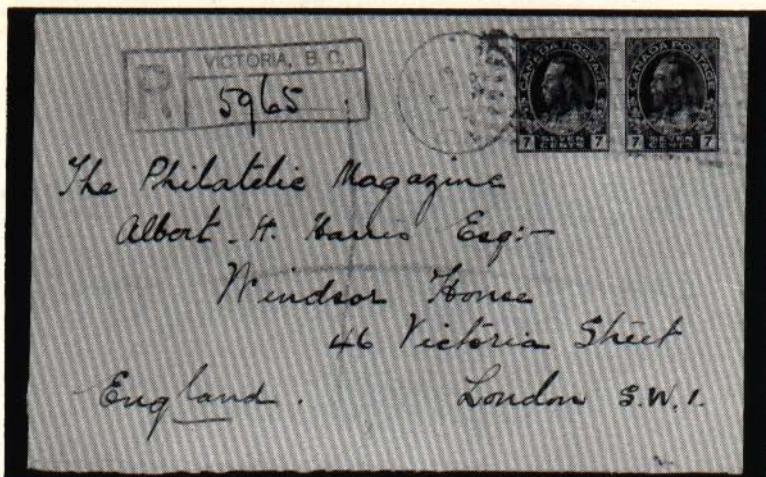 R
VICTORIA, B.C.
5965
CANADA POSTAGE
7 CENTS 7
CANADA POSTAGE
7 CENTS 7
The Philatelic Magazine
Albert. H. Harris Esq:-
Windsor House
46 Victoria Street
England. London S.W.1.